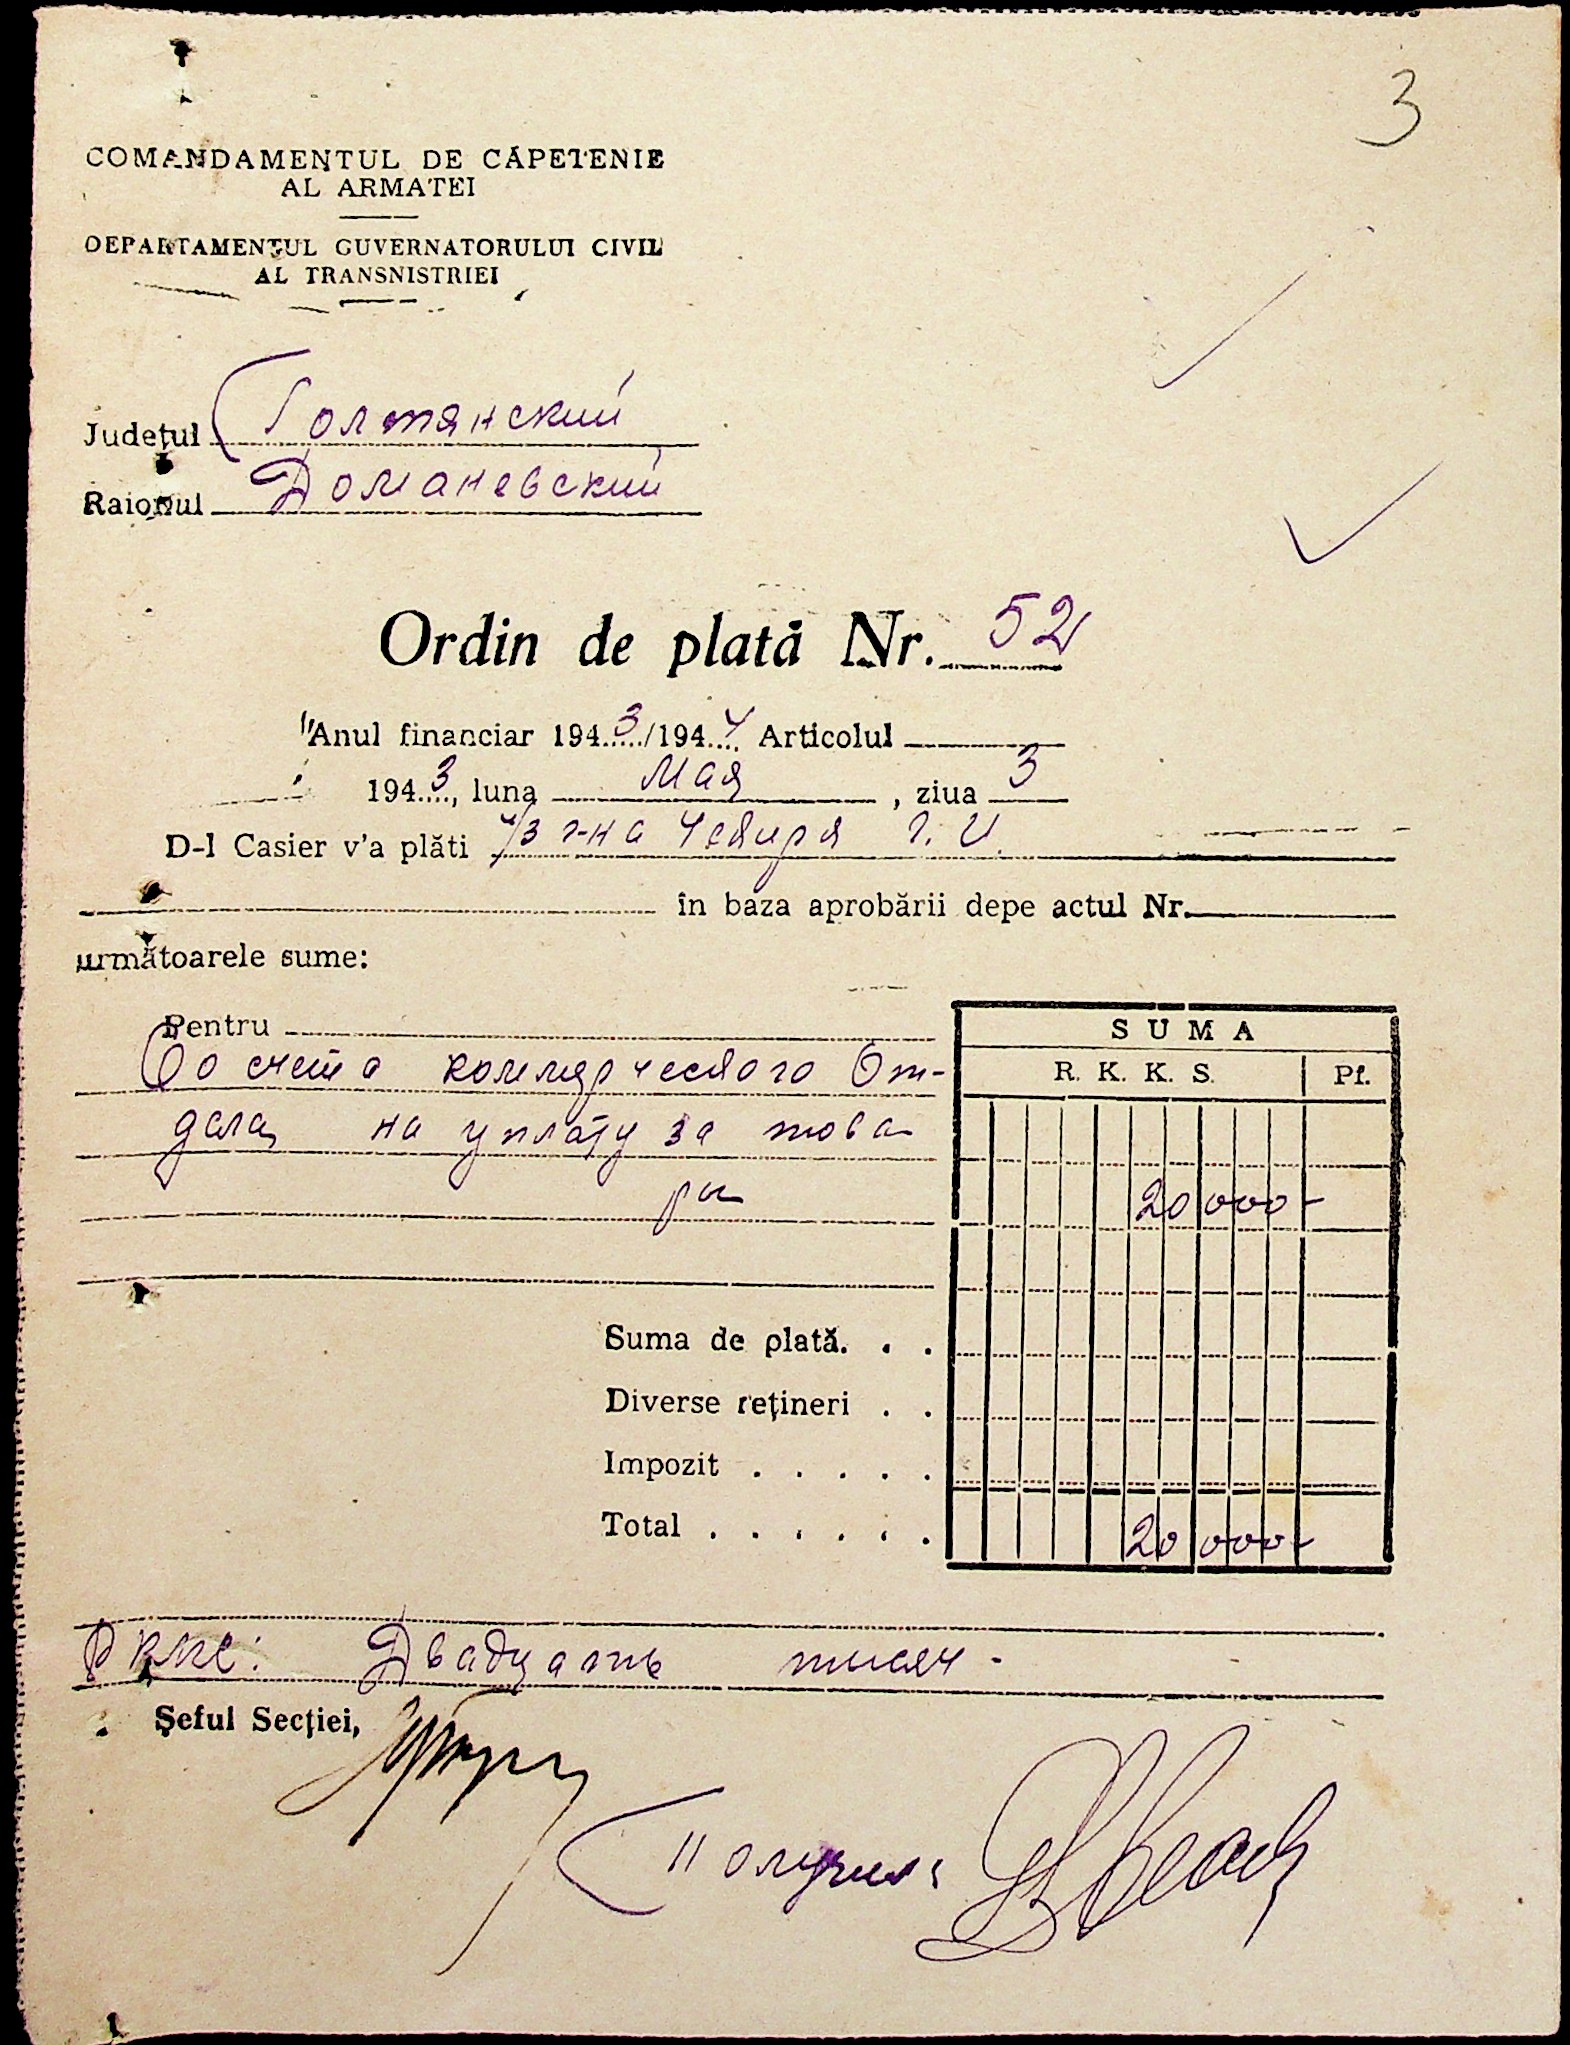 3
COMANDAMENTUL DE CĂPETENIE
AL ARMATEI
DEPARTAMENTUL GUVERNATORULUI CIVIL
AL TRANSNISTRIEI
Județul Голтянский
Raionul Доманевский
Ordin de plată Nr. 52
Anul financiar 1943/1944 Articolul
1943, luna мая, ziua 3
D-l Casier v'a plăti ч/з г-на Г. И.
în baza aprobării depe actul Nr.
următoarele sume:
Pentru
SUMA
R. K. K. S. Pf.
Со счета коммерческого От-
дела, на уплату за това
ры
20 000-
Suma de plată. . .
Diverse rețineri . .
Impozit . . . . .
Total . . . . . . 20 000-
Двадцать тысяч -
Șeful Secției,
Получил: